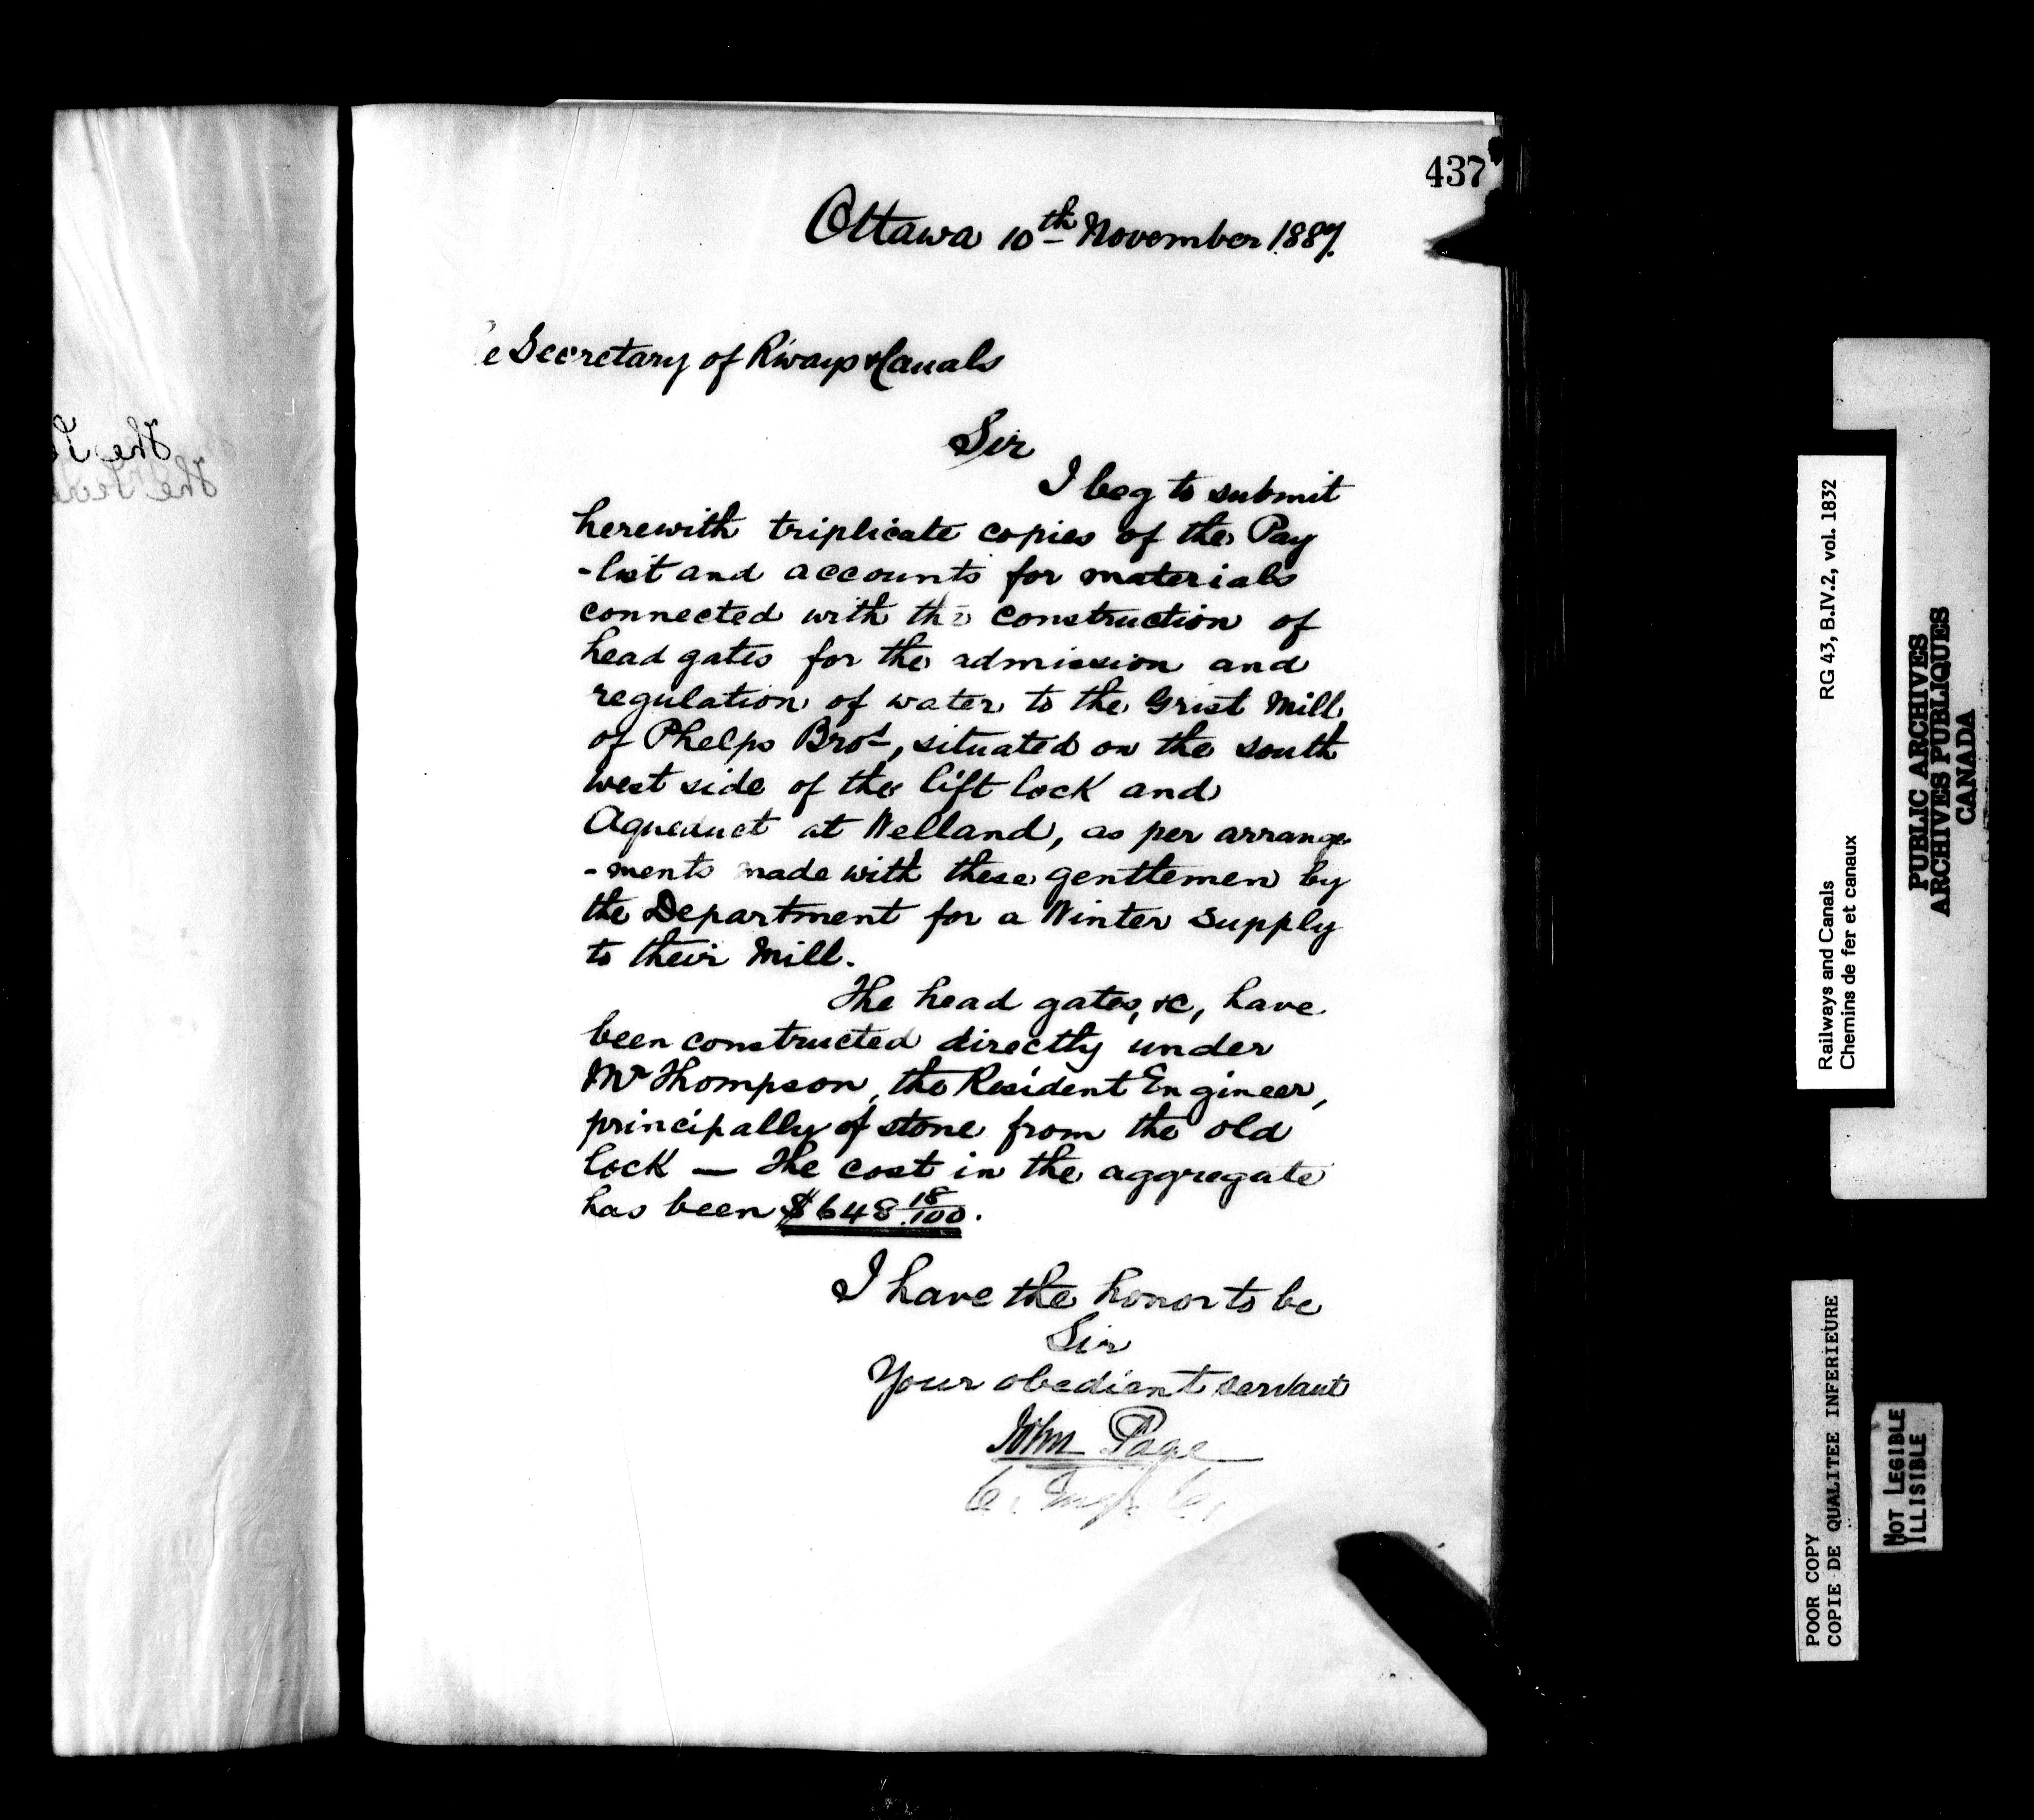 437
Ottawa 10th November 1887.
e Secretary of Rways & Canals
Sir
I beg to submit
herewith triplicate copies of the Pay
-list and accounts for materials
connected with the construction of
head gates for the admission and
regulation of water to the Grist Mill
of Phelps Bros, situated on the south
west side of the lift lock and
Aqueduct at Welland, as per arrange
-ments made with these gentlemen by
the Department for a Winter supply
to their Mill.
The head gates, &c, have
been constructed directly under
Mr Thompson, the Resident Engineer,
principally of stone from the old
lock — The cost in the aggregate
has been $648.18/100.
I have the honor to be
Sir
Your obedient servant
John Page
C. Engr. C.
The
The
Railways and Canals RG 43, B.IV.2, vol. 1832
Chemins de fer et canaux
PUBLIC ARCHIVES
ARCHIVES PUBLIQUES
CANADA
POOR COPY
COPIE DE QUALITEE INFERIEURE
NOT LEGIBLE
ILLISIBLE